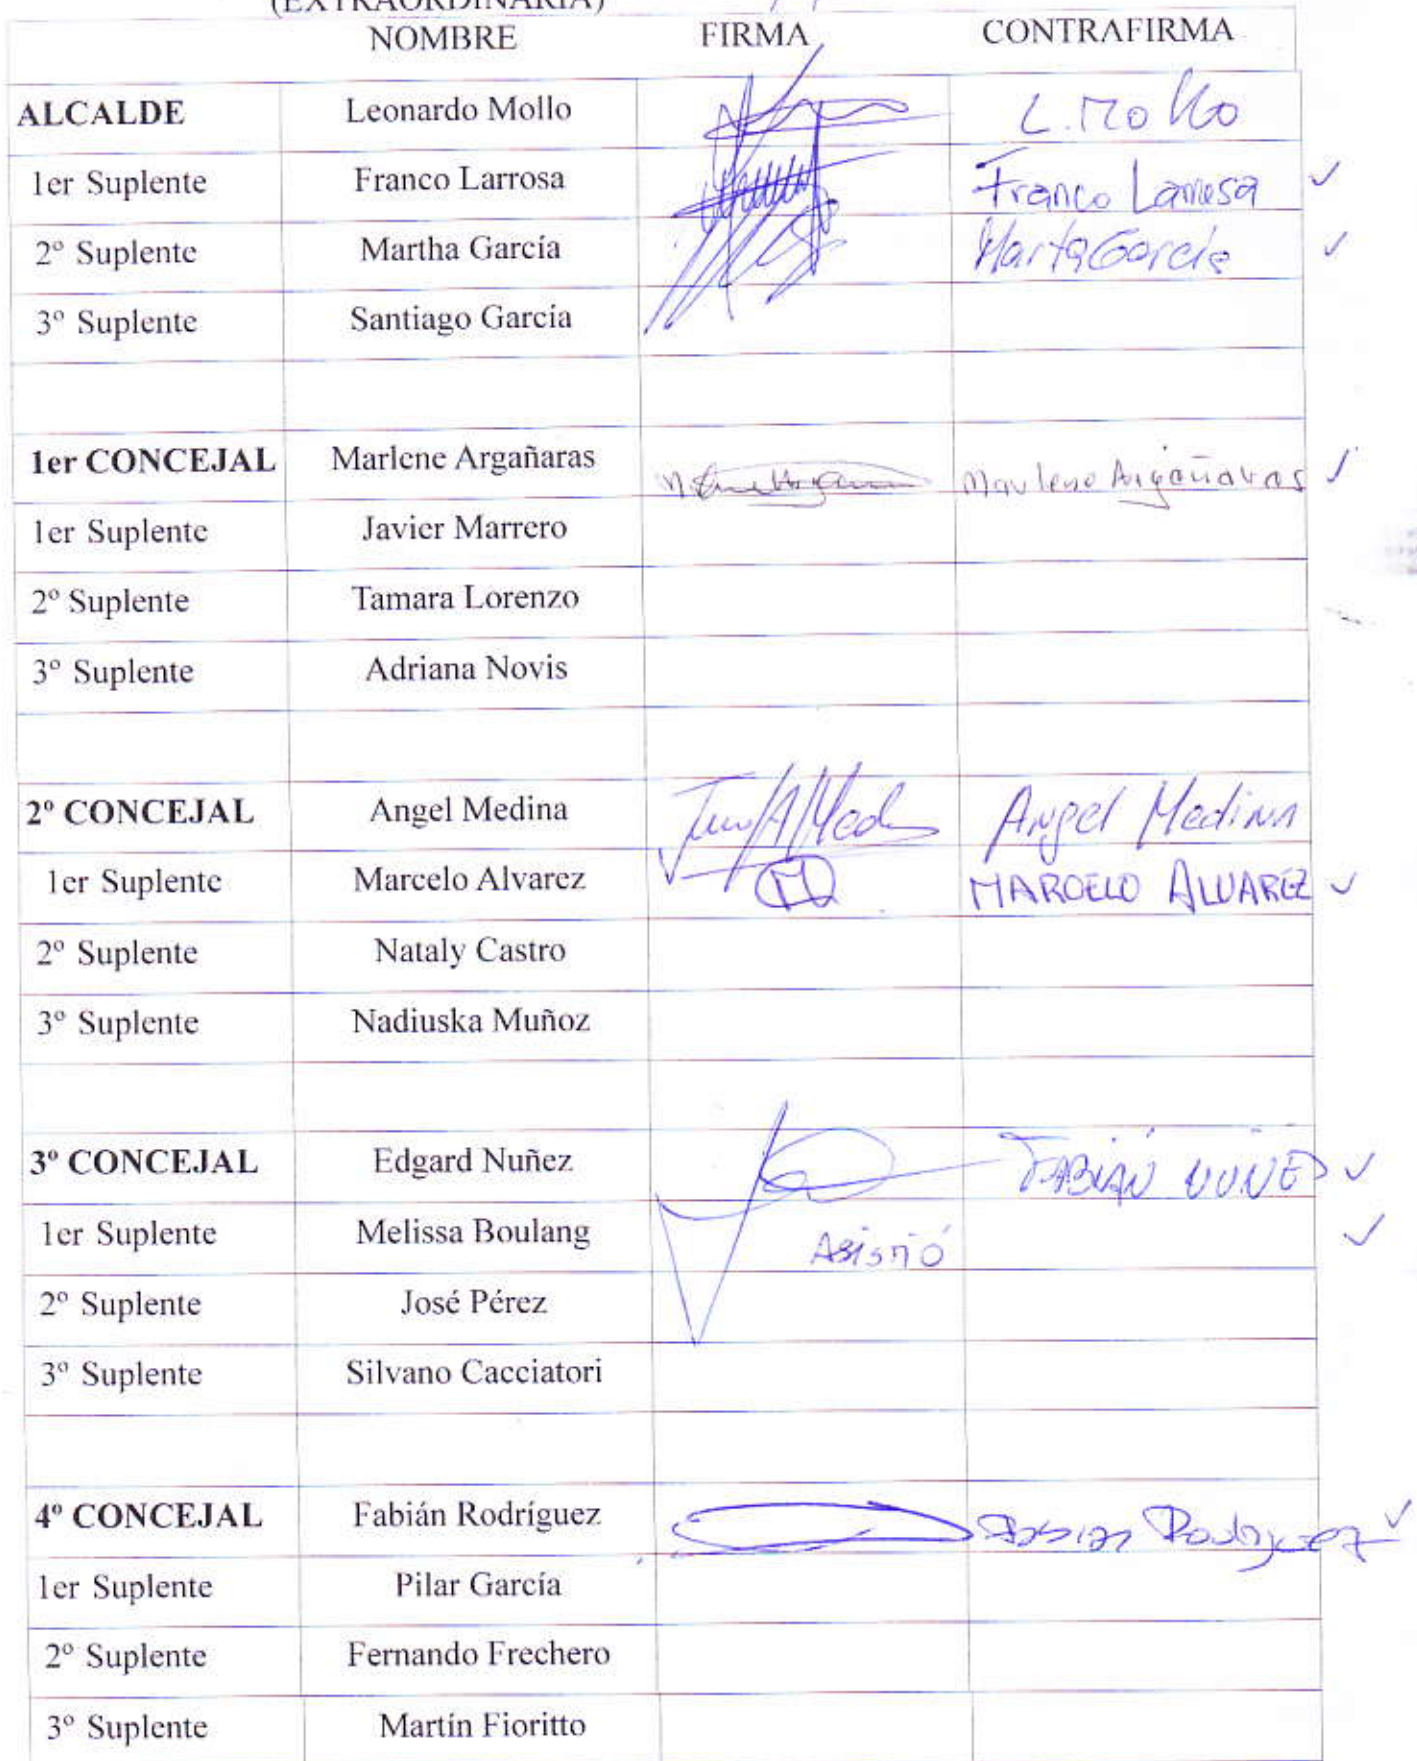 (EXTRAORDINARIA)
NOMBRE FIRMA CONTRAFIRMA
ALCALDE Leonardo Mollo L. Mollo
1er Suplente Franco Larrosa Franco Larrosa ✓
2º Suplente Martha García Marta García ✓
3º Suplente Santiago García
1er CONCEJAL Marlene Argañaras Marlene Argañaras ✓
1er Suplente Javier Marrero
2º Suplente Tamara Lorenzo
3º Suplente Adriana Novis
2º CONCEJAL Angel Medina Angel Medina
1er Suplente Marcelo Alvarez MARCELO ALVAREZ ✓
2º Suplente Nataly Castro
3º Suplente Nadiuska Muñoz
3º CONCEJAL Edgard Nuñez FABIÁN NUÑEZ ✓
1er Suplente Melissa Boulang Asistió ✓
2º Suplente José Pérez
3º Suplente Silvano Cacciatori
4º CONCEJAL Fabián Rodríguez Fabian Rodriguez ✓
1er Suplente Pilar García
2º Suplente Fernando Frechero
3º Suplente Martín Fioritto